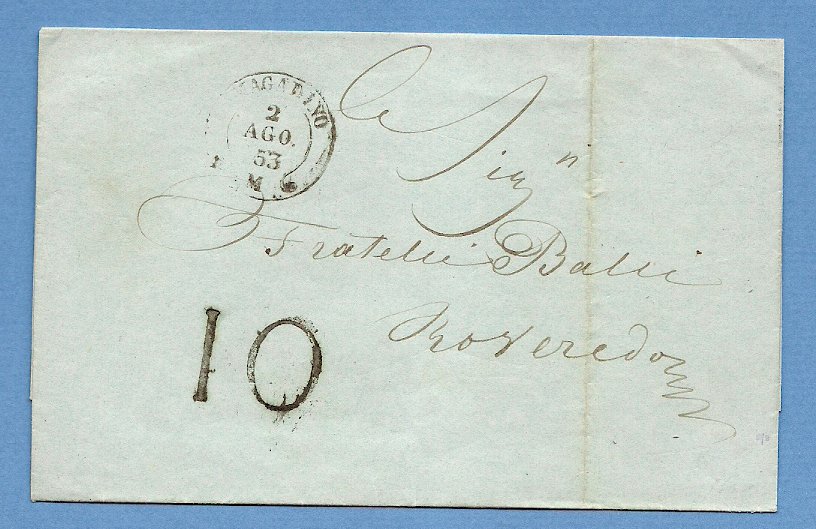 MAGADINO
2
AGO.
53
M
Li Sig.n
Fratelli Balli
Roveredo
10